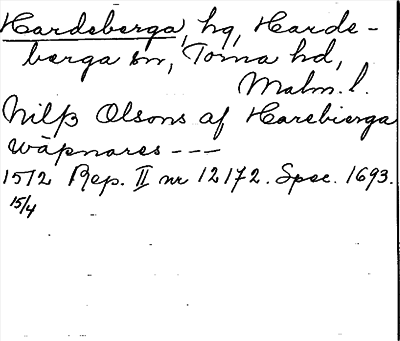 Hardeberga, hg, Harde-
berga sn, Torna hd,
Malm. l.
Nilß Olsons af Harebierga
wäpnares ---
1512 Rep. II nr 12172. Spec. 1693.
15/4